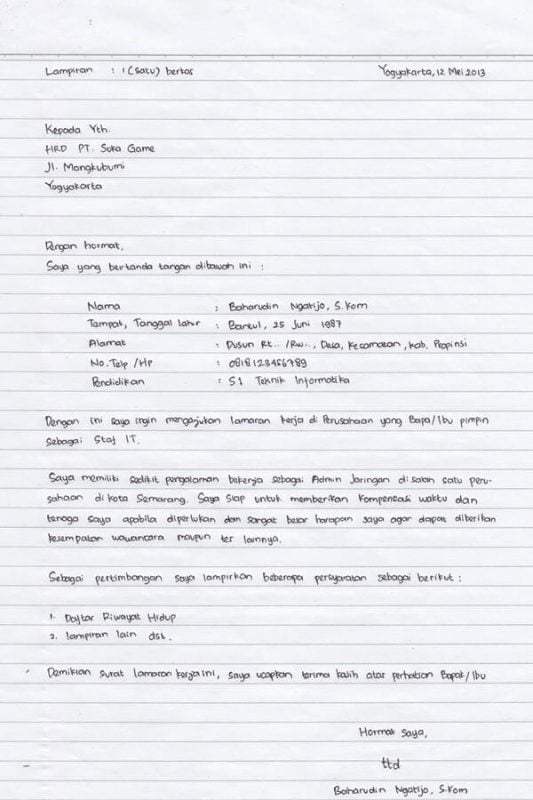 Lampiran : 1 (satu) berkas Yogyakarta, 12 Mei 2013
Kepada Yth.
HRD PT. Suka Game
Jl. Mangkubumi
Yogyakarta
Dengan hormat,
Saya yang bertanda tangan dibawah ini :
Nama : Baharudin Ngatijo, S.Kom
Tempat, Tanggal lahir : Bantul, 25 Juni 1987
Alamat : Dusun Rt.. /Rw.., Desa, Kecamatan, kab, Propinsi
No. Telp /HP : 0818123456789
Pendidikan : S1 Teknik Informatika
Dengan ini saya ingin mengajukan lamaran kerja di Perusahaan yang Bapa/Ibu pimpin
sebagai Staf IT.
Saya memiliki sedikit pengalaman bekerja sebagai Admin Jaringan di salah satu peru-
sahaan di kota Semarang. Saya siap untuk memberikan kompensasi waktu dan
tenaga saya apabila diperlukan dan sangat besar harapan saya agar dapat diberikan
kesempatan wawancara maupun tes lainnya.
Sebagai pertimbangan saya lampirkan beberapa persyaratan sebagai berikut :
1. Daftar Riwayat Hidup
2. lampiran lain dst.
Demikian surat lamaran kerja ini, saya ucapkan terima kasih atas perhatian Bapak/Ibu
Hormat saya,
ttd
Baharudin Ngatijo, S.Kom